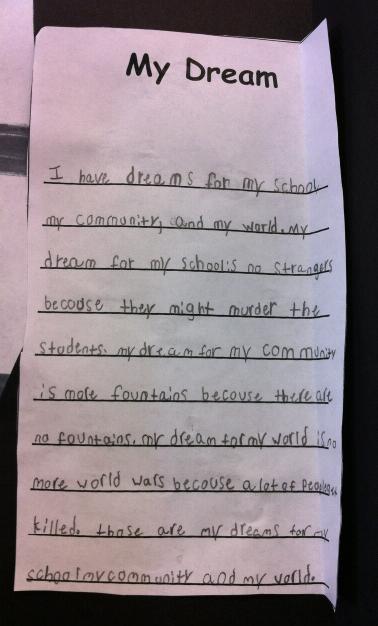 My Dream
I have dreams for my school
my community, and my world. My
dream for my school is no strangers
becouse they might murder the
students. my dream for my community
is more fountains becouse there are
no fountains. my dream for my world is no
more world wars becouse a lot of people
killed. those are my dreams for my
school my community and my world.